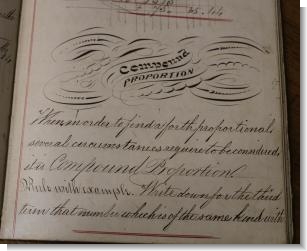 Compound
PROPORTION
When in order to find a forth proportional,
several circumstances require to be considered,
it is Compound Proportion
Rule with example. Write down for the third
term that number which is of the same kind with